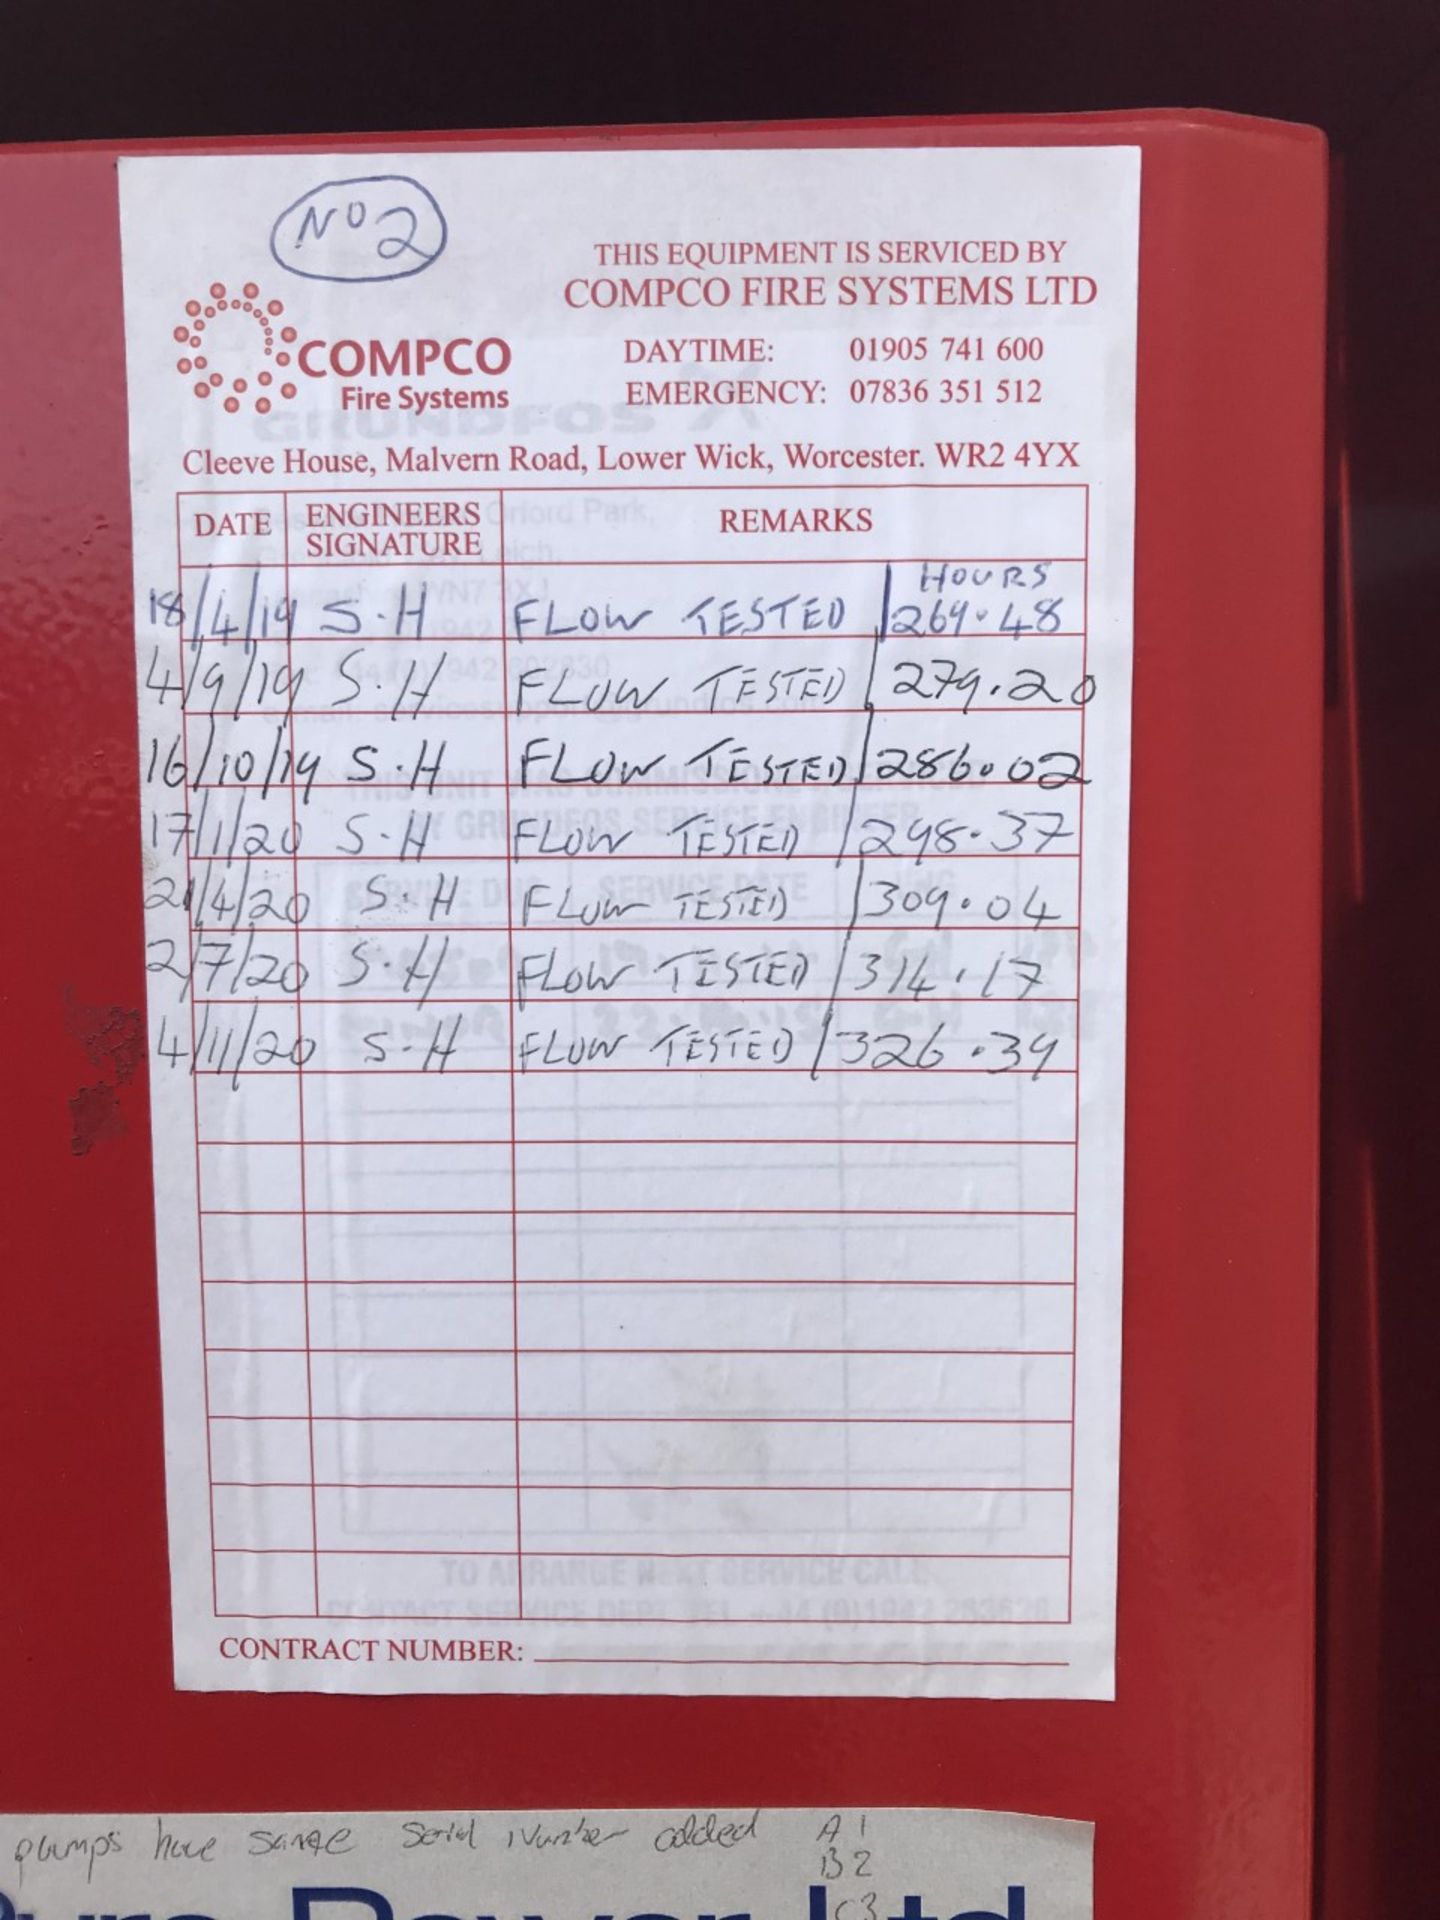 NO 2
THIS EQUIPMENT IS SERVICED BY
COMPCO FIRE SYSTEMS LTD
COMPCO
Fire Systems
DAYTIME: 01905 741 600
EMERGENCY: 07836 351 512
Cleeve House, Malvern Road, Lower Wick, Worcester. WR2 4YX
DATE ENGINEERS SIGNATURE REMARKS
HOURS
18/4/19 S.H FLOW TESTED / 269.48
4/9/19 S.H FLOW TESTED / 279.20
16/10/19 S.H FLOW TESTED / 286.02
17/1/20 S.H FLOW TESTED / 298.37
21/4/20 S.H FLOW TESTED / 309.04
2/7/20 S.H FLOW TESTED / 314.17
4/11/20 S.H FLOW TESTED / 326.39
TO ARRANGE NEXT SERVICE CALL
CONTACT SERVICE DEPT. TEL
CONTRACT NUMBER:
pumps have same serial number added A 1
B 2
C 3
Power Ltd